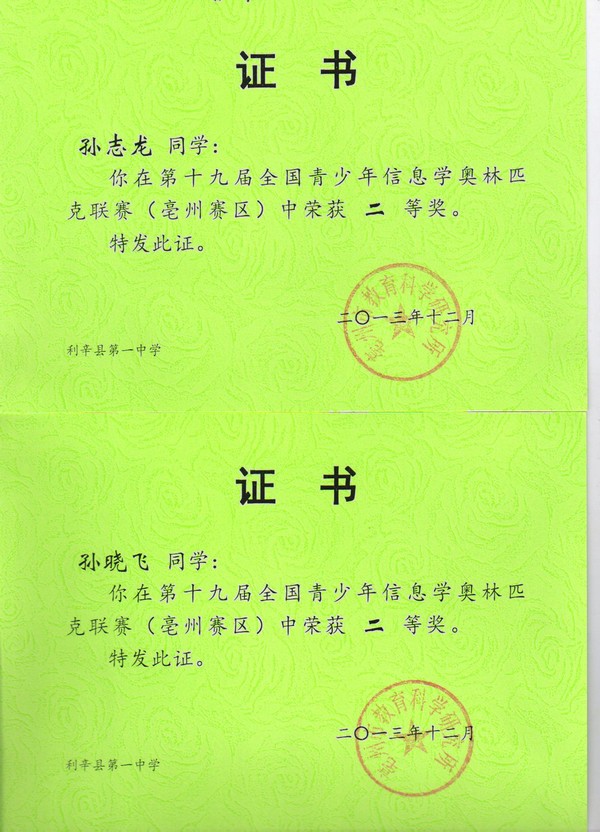 证 书
孙志龙 同学：
你在第十九届全国青少年信息学奥林匹
克联赛（亳州赛区）中荣获 二 等奖。
特发此证。
亳州市教育科学研究所
二〇一三年十二月
利辛县第一中学
证 书
孙晓飞 同学：
你在第十九届全国青少年信息学奥林匹
克联赛（亳州赛区）中荣获 二 等奖。
特发此证。
亳州市教育科学研究所
二〇一三年十二月
利辛县第一中学